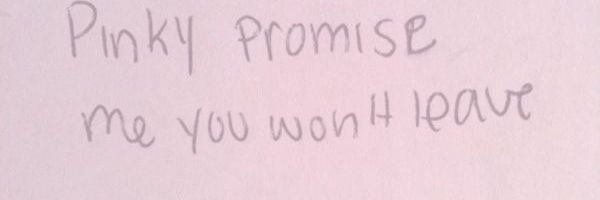 Pinky promise
me you won't leave